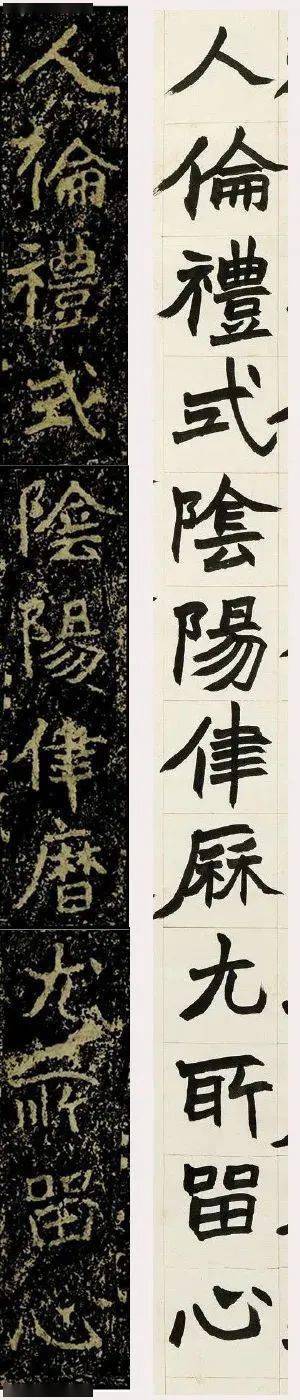 人倫禮式陰陽律厤尤所留心
人倫禮式陰陽律曆尤所留心